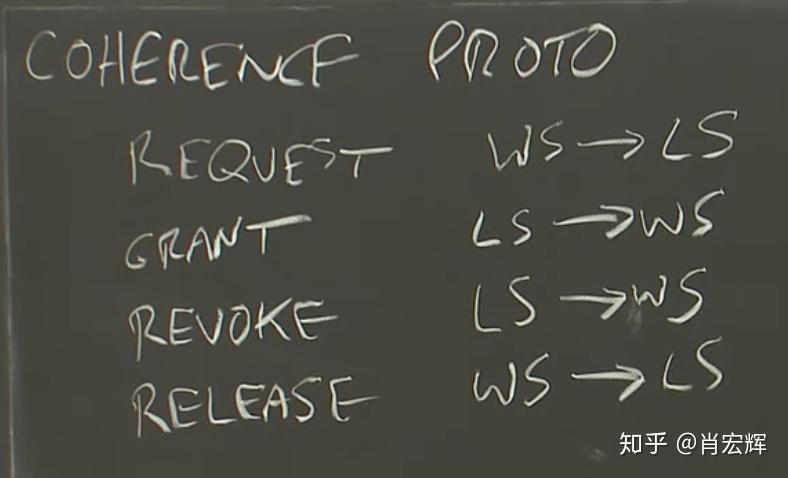 COHERENCE PROTO
REQUEST WS → LS
GRANT LS → WS
REVOKE LS → WS
RELEASE WS → LS
知乎 @肖宏辉